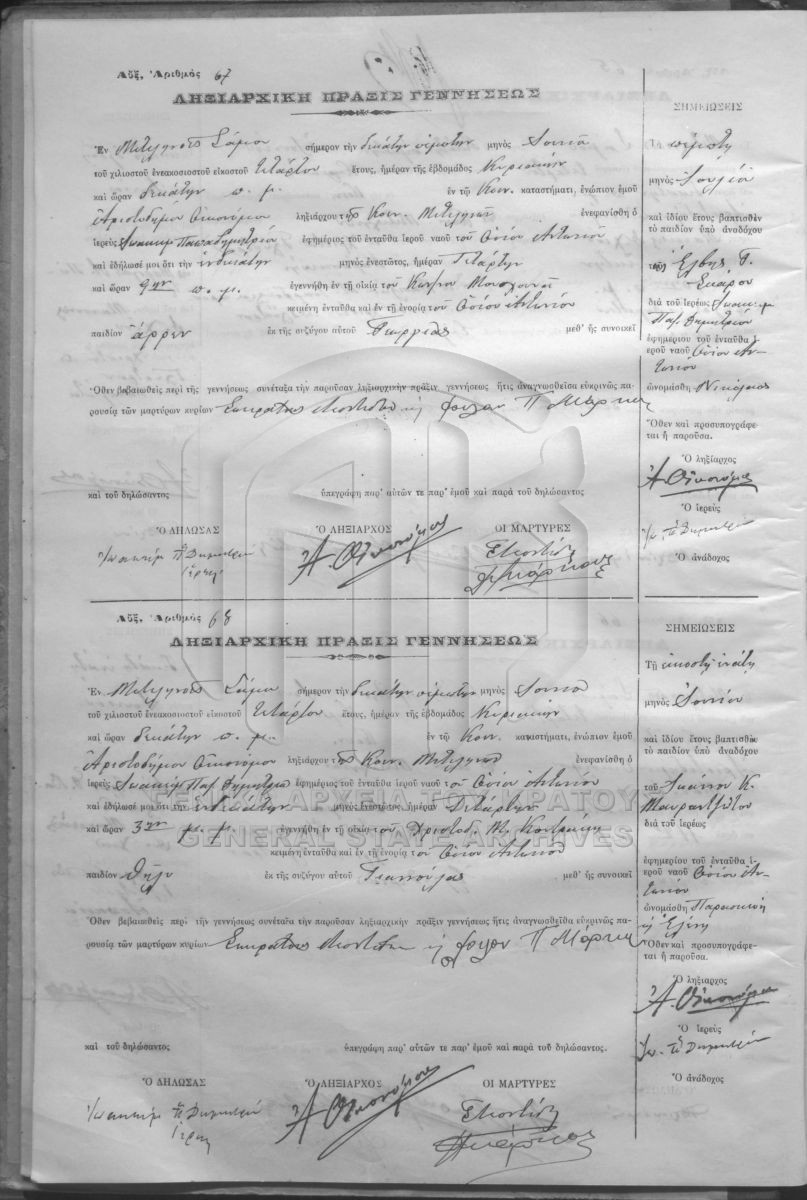 Αὔξ. Ἀριθμὸς 67
ΛΗΞΙΑΡΧΙΚΗ ΠΡΑΞΙΣ ΓΕΝΝΗΣΕΩΣ
Ἐν Σάμου σήμερον τὴν δεκάτην πέμπτην μηνὸς
τοῦ χιλιοστοῦ ἐνεακοσιοστοῦ εἰκοστοῦ τετάρτου ἔτους, ἡμέραν τῆς ἑβδομάδος Κυριακὴν
καὶ ὥραν δεκάτην π. μ. ἐν τῷ Κοιν. καταστήματι, ἐνώπιον ἐμοῦ
Ἀριστοδήμου Οἰκονόμου ληξιάρχου τῆς Κοιν. ἐνεφανίσθη ὁ
ἱερεὺς Ἰωακεὶμ Παπαδημητρίου ἐφημέριος τοῦ ἐνταῦθα ἱεροῦ ναοῦ τοῦ Ἁγίου Ἀντωνίου
καὶ ἐδήλωσέ μοι ὅτι τὴν ἑνδεκάτην μηνὸς ἐνεστῶτος, ἡμέραν Τετάρτην
καὶ ὥραν 9ην π. μ. ἐγεννήθη ἐν τῇ οἰκίᾳ τοῦ
κειμένῃ ἐνταῦθα καὶ ἐν τῇ ἐνορίᾳ τοῦ Ἁγίου Ἀντωνίου
παιδίον ἄρρεν ἐκ τῆς συζύγου αὐτοῦ μεθ' ἧς συνοικεῖ
Ὅθεν βεβαιωθεὶς περὶ τῆς γεννήσεως συνέταξα τὴν παροῦσαν ληξιαρχικὴν πρᾶξιν γεννήσεως ἥτις ἀναγνωσθεῖσα εὐκρινῶς πα-
ρουσίᾳ τῶν μαρτύρων κυρίων Π. Μάρκου
καὶ τοῦ δηλώσαντος ὑπεγράφη παρ' αὐτῶν τε παρ' ἐμοῦ καὶ παρὰ τοῦ δηλώσαντος
Ὁ ΔΗΛΩΣΑΣ Ὁ ΛΗΞΙΑΡΧΟΣ ΟΙ ΜΑΡΤΥΡΕΣ
Ἰωακεὶμ Π. Δημητρίου Ἀ. Οἰκονόμος
Ἱερεὺς
ΣΗΜΕΙΩΣΕΙΣ
Τῇ πέμπτῃ
μηνὸς Ἰουλίου
καὶ ἰδίου ἔτους βαπτισθὲν
τὸ παιδίον ὑπὸ ἀναδόχου
διὰ τοῦ ἱερέως Ἰωακεὶμ
Παπ. Δημητρίου
ἐφημερίου τοῦ ἐνταῦθα ἱ-
εροῦ ναοῦ Ἁγίου Ἀν-
τωνίου
ὠνομάσθη Νικόλαος
Ὅθεν καὶ προσυπογράφε-
ται ἡ παροῦσα.
Ὁ ληξίαρχος
Ἀ. Οἰκονόμος
Ὁ ἱερεὺς
Ἰω. Π. Δημητρίου
Ὁ ἀνάδοχος
Αὔξ. Ἀριθμὸς 68
ΛΗΞΙΑΡΧΙΚΗ ΠΡΑΞΙΣ ΓΕΝΝΗΣΕΩΣ
Ἐν Σάμου σήμερον τὴν δεκάτην πέμπτην μηνὸς
τοῦ χιλιοστοῦ ἐνεακοσιοστοῦ εἰκοστοῦ τετάρτου ἔτους, ἡμέραν τῆς ἑβδομάδος Κυριακὴν
καὶ ὥραν δεκάτην π. μ. ἐν τῷ Κοιν. καταστήματι, ἐνώπιον ἐμοῦ
Ἀριστοδήμου Οἰκονόμου ληξιάρχου τῆς Κοιν. ἐνεφανίσθη ὁ
ἱερεὺς Ἰωακεὶμ Παπ. Δημητρίου ἐφημέριος τοῦ ἐνταῦθα ἱεροῦ ναοῦ τοῦ Ἁγίου Ἀντωνίου
καὶ ἐδήλωσέ μοι ὅτι τὴν ἑνδεκάτην μηνὸς ἐνεστῶτος, ἡμέραν Τετάρτην
καὶ ὥραν 3ην μ. μ. ἐγεννήθη ἐν τῇ οἰκίᾳ τοῦ
κειμένῃ ἐνταῦθα καὶ ἐν τῇ ἐνορίᾳ τοῦ Ἁγίου Ἀντωνίου
παιδίον θῆλυ ἐκ τῆς συζύγου αὐτοῦ Γιαννούλας μεθ' ἧς συνοικεῖ
Ὅθεν βεβαιωθεὶς περὶ τῆς γεννήσεως συνέταξα τὴν παροῦσαν ληξιαρχικὴν πρᾶξιν γεννήσεως ἥτις ἀναγνωσθεῖσα εὐκρινῶς πα-
ρουσίᾳ τῶν μαρτύρων κυρίων Π. Μάρκου
καὶ τοῦ δηλώσαντος ὑπεγράφη παρ' αὐτῶν τε παρ' ἐμοῦ καὶ παρὰ τοῦ δηλώσαντος.
Ὁ ΔΗΛΩΣΑΣ Ὁ ΛΗΞΙΑΡΧΟΣ ΟΙ ΜΑΡΤΥΡΕΣ
Ἰωακεὶμ Π. Δημητρίου Ἀ. Οἰκονόμος
Ἱερεὺς
ΣΗΜΕΙΩΣΕΙΣ
Τῇ εἰκοστῇ ἐνάτῃ
μηνὸς Ἰουνίου
καὶ ἰδίου ἔτους βαπτισθὲν
τὸ παιδίον ὑπὸ ἀναδόχου
τοῦ Ἰωάννου Κ.
διὰ τοῦ ἱερέως
ἐφημερίου τοῦ ἐνταῦθα ἱ-
εροῦ ναοῦ Ἁγίου Ἀν-
τωνίου
ὠνομάσθη Παρασκευὴ
ἢ Ἑλένη
Ὅθεν καὶ προσυπογράφε-
ται ἡ παροῦσα.
Ὁ ληξίαρχος
Ἀ. Οἰκονόμος
Ὁ ἱερεὺς
Ἰω. Π. Δημητρίου
Ὁ ἀνάδοχος
ΓΕΝΙΚΑ ΑΡΧΕΙΑ ΤΟΥ ΚΡΑΤΟΥΣ
GENERAL STATE ARCHIVES